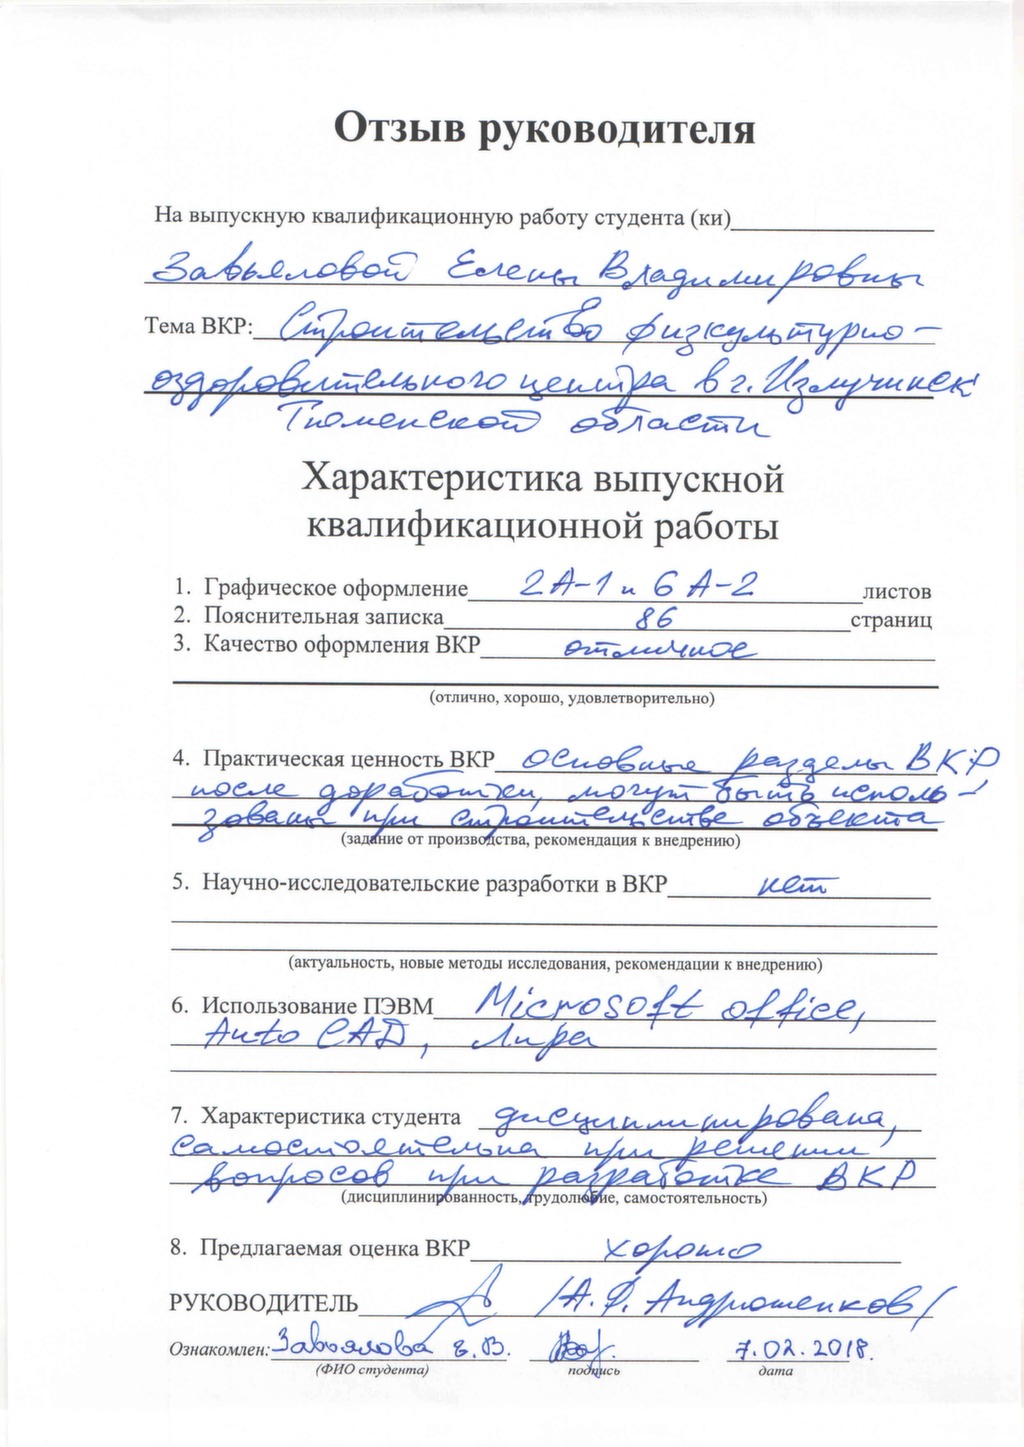 Отзыв руководителя
На выпускную квалификационную работу студента (ки)
Завьяловой Елены Владимировны
Тема ВКР: Строительство физкультурно-
оздоровительного центра в г. Излучинск
Тюменской области
Характеристика выпускной
квалификационной работы
1. Графическое оформление 2А-1 и 6 А-2 листов
2. Пояснительная записка 86 страниц
3. Качество оформления ВКР отличное
(отлично, хорошо, удовлетворительно)
4. Практическая ценность ВКР основные разделы ВКР,
после доработки, могут быть исполь-
зованы при строительстве объекта
(задание от производства, рекомендация к внедрению)
5. Научно-исследовательские разработки в ВКР нет
(актуальность, новые методы исследования, рекомендации к внедрению)
6. Использование ПЭВМ Microsoft office,
Auto CAD, Лира
7. Характеристика студента дисциплинирована,
самостоятельна при решении
вопросов при разработке ВКР
(дисциплинированность, трудолюбие, самостоятельность)
8. Предлагаемая оценка ВКР хорошо
РУКОВОДИТЕЛЬ /А.Ф. Андрюшенков/
Ознакомлен: Завьялова Е.В. 7.02.2018.
(ФИО студента) подпись дата